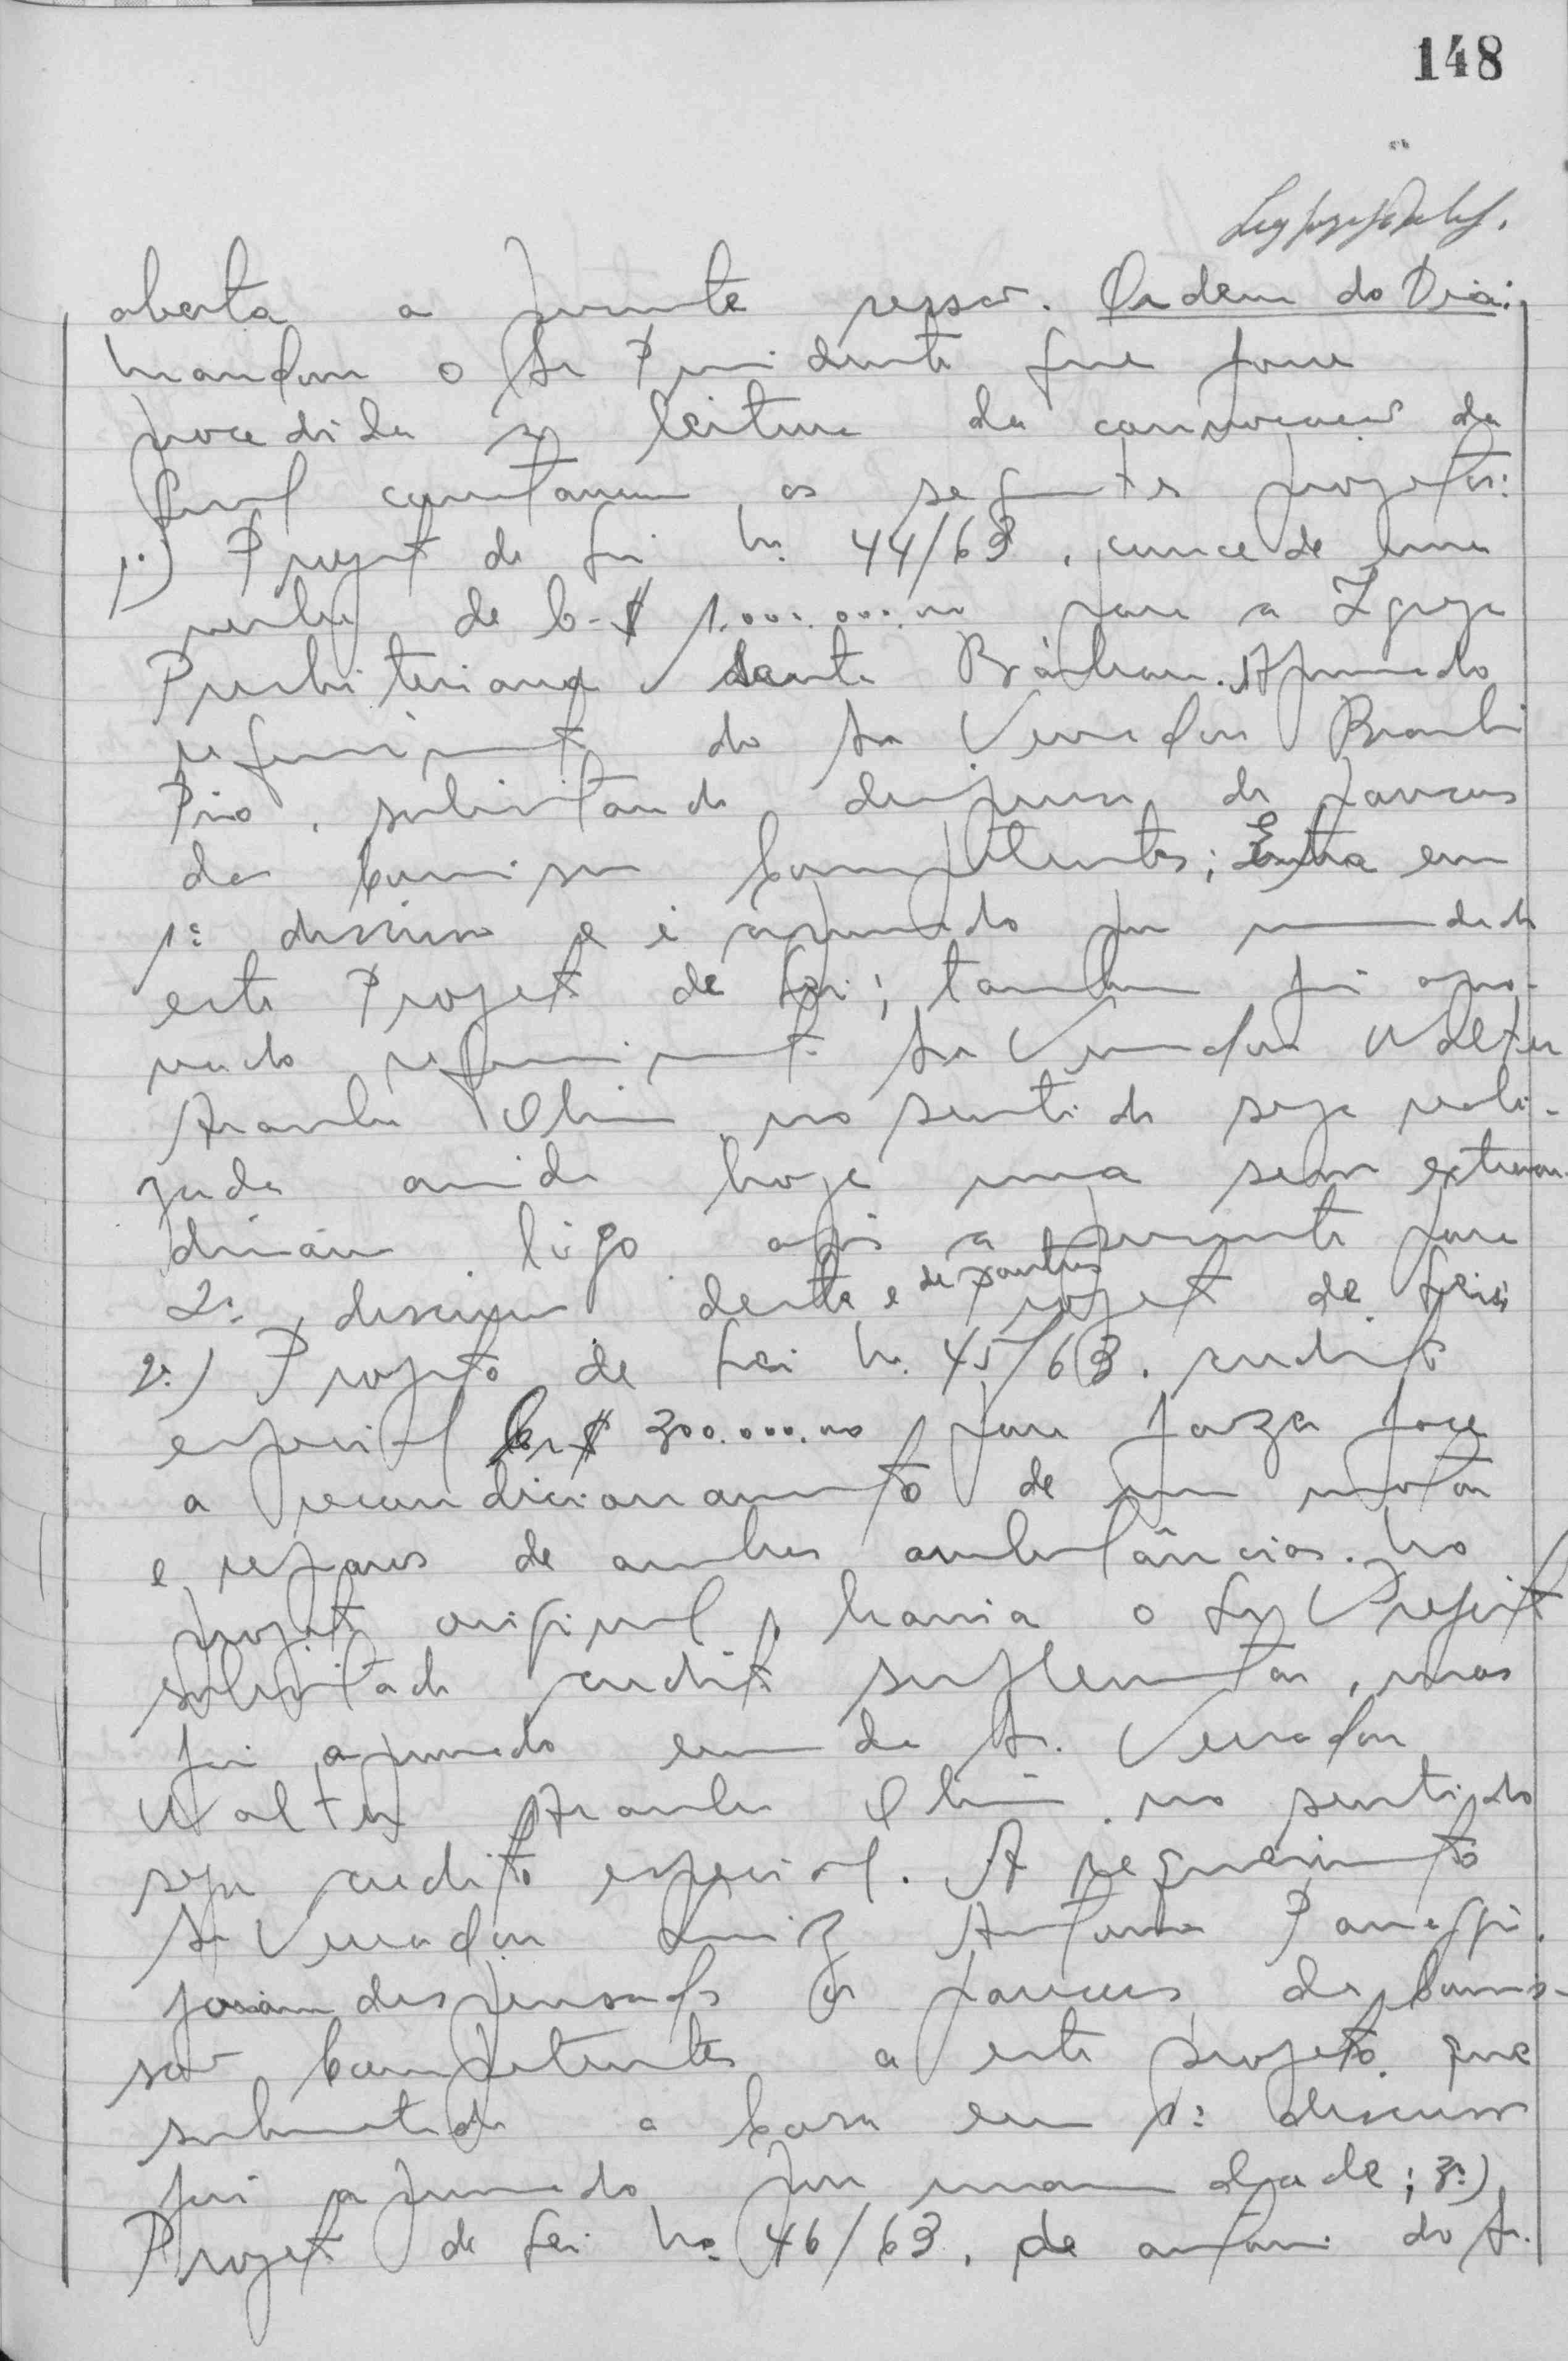 148
aberta a presente sessão. Ordem do Dia:
mandou o Sr Presidente que fosse
procedida a leitura da convocação da
qual constavam os seguintes projetos:
1º) Projeto de Lei nº 44/63, concede uma
verba de Cr$ 1.000.000,00 para a Igreja
Presbiteriana Santa Bárbara. Aprovado
requerimento do Sr Vereador
Pio, solicitando dispensa de pareceres
da Comissão Competentes; Entra em
1ª discussão e é aprovado por unanimidade
este Projeto de Lei; também foi apro-
vado requerimento Sr Vereador Walter
no sentido seja reali-
zada ainda hoje uma sessão extraor-
dinária logo após a presente para
2ª discussão deste e de outros Projeto de Leis;
2º) Projeto de Lei nº 45/63, credito
especial Cr$ 300.000,00 para fazer face
a recondicionamento de um motor
e reparos de ambas ambulâncias. No
projeto original, havia o Sr Prefeito
solicitado credito suplementar, mas
foi aprovado emenda Sr. Vereador
Walter no sentido
seja credito especial. A requerimento
Sr Vereador Luiz Antonio Panaggio,
foram dispensados os pareceres da Comis-
são Competentes a este projeto, que
submetido a Casa em 1ª discussão
foi aprovado por unanimidade; 3º)
Projeto de Lei nº 46/63, de autoria do Sr.